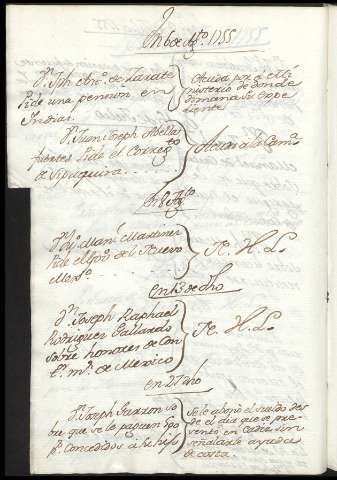 En 6 de Agto. 1755
Dn. Jph de Zarate
Pide una pension en
Indias.
Acuda por el Mi
nisterio de donde
demana su expe
diente
Dn. Juan Joseph Abella
fuertes Pide el Corregto
de Sipaquira
Acuda a la Camra
En 8 Agto
Dn. Manl. Martinez
Pide el de el Nuevo
Mexo.
N. H. L.
en 13 de dho
Dn. Joseph Raphael
Rodriguez Gallardo
sobre honores de Con
tr. mr. de Mexico
N. H. L.
en 27 dho
Dn. Joseph Garzon so
bre que se le paguen
concedidos a su hijo
Se le abonó el sueldo des
de el dia que se pre
sentó en Cadiz, sin
señalarle ayuda
de costa.